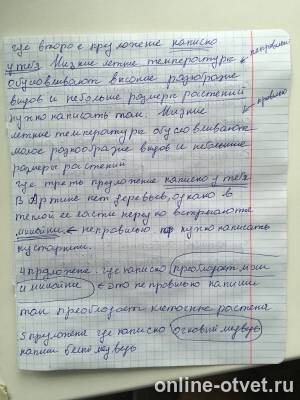 где второе предложение написко
у тебя Низкие летние температуре ← неправильно
обусловливают высокое разнообразие
видов и небольше размеры растений
нужно написать там. Низкие ← правильно
летние температуре обусловливают
малое разнообразие видов и небольшие
размеры растений
где треть предложение написко у тебя
В Арктике нет деревьев, однако в
теплой ее части нередко встречаются
лишайник ← неправильно нужно написать
кустарники.
4 предложене где написко преобладает мхи
и лишайники ← это не правильно напиши
там преобладает цветочные растеня
5 предложена где написко очковый медведь
напиши белый медведь
online-otvet.ru